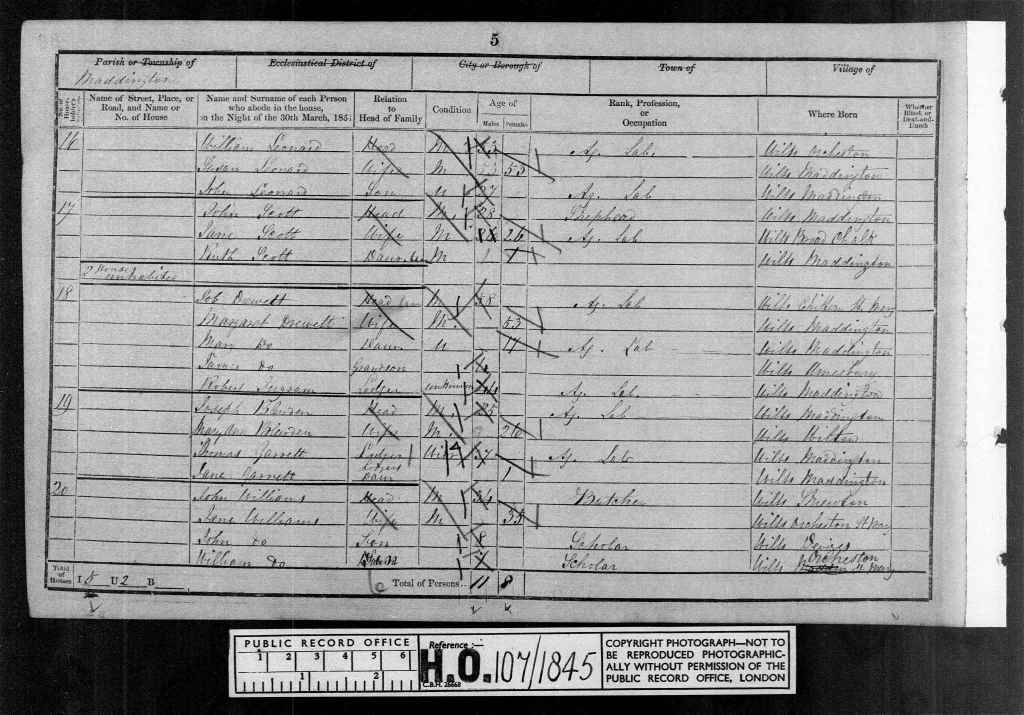 5
Parish or Township of
Ecclesiastical District of
City or Borough of
Town of
Village of
Maddington
Name of Street, Place, or Road, and Name or No. of House
Name and Surname of each Person who abode in the house, on the Night of the 30th March, 1851
Relation to Head of Family
Condition
Age of
Males
Females
Rank, Profession, or Occupation
Where Born
Whether Blind, or Deaf-and-Dumb
16 William Leonard Head M Ag. Lab. Wilts Orcheston
Susan Leonard Wife M 53 Wilts Maddington
John Leonard Son U 27 Ag. Lab Wilts Maddington
17 John Scott Head M 28 Shepherd Wilts Maddington
Jane Scott Wife M 26 Ag. Lab Wilts Broad Chalk
Ruth Scott 1 Wilts Maddington
2 Houses uninhabited
18 Job Drewett Head 58 Ag. Lab Wilts St Mary
Margaret Drewett Wife M 53 Wilts Maddington
Mary Do Daur U Ag. Lab Wilts Maddington
James Do Grandson Wilts Amesbury
Robert Lodger Ag. Lab. Wilts Maddington
19 Joseph Head M 25 Ag. Lab Wilts Maddington
Wife M 26 Wilts Wilton
Thomas Garrett Lodger 37 Ag. Lab Wilts Maddington
Jane Garrett Lodgers Daur 1 Wilts Maddington
20 John Williams Head M 34 Butcher Wilts Shrewton
Jane Williams Wife M 38 Wilts Orcheston St Mary
John do Son 8 Scholar Wilts
William Do Scholar Wilts Orcheston St Mary
Total of Houses
I 5 U 2 B
Total of Persons
11 8
PUBLIC RECORD OFFICE
1 2 3 4 5 6
1 2
Reference :-
H.O. 107/1845
C.B.H. 26668
COPYRIGHT PHOTOGRAPH—NOT TO
BE REPRODUCED PHOTOGRAPHIC-
ALLY WITHOUT PERMISSION OF THE
PUBLIC RECORD OFFICE, LONDON